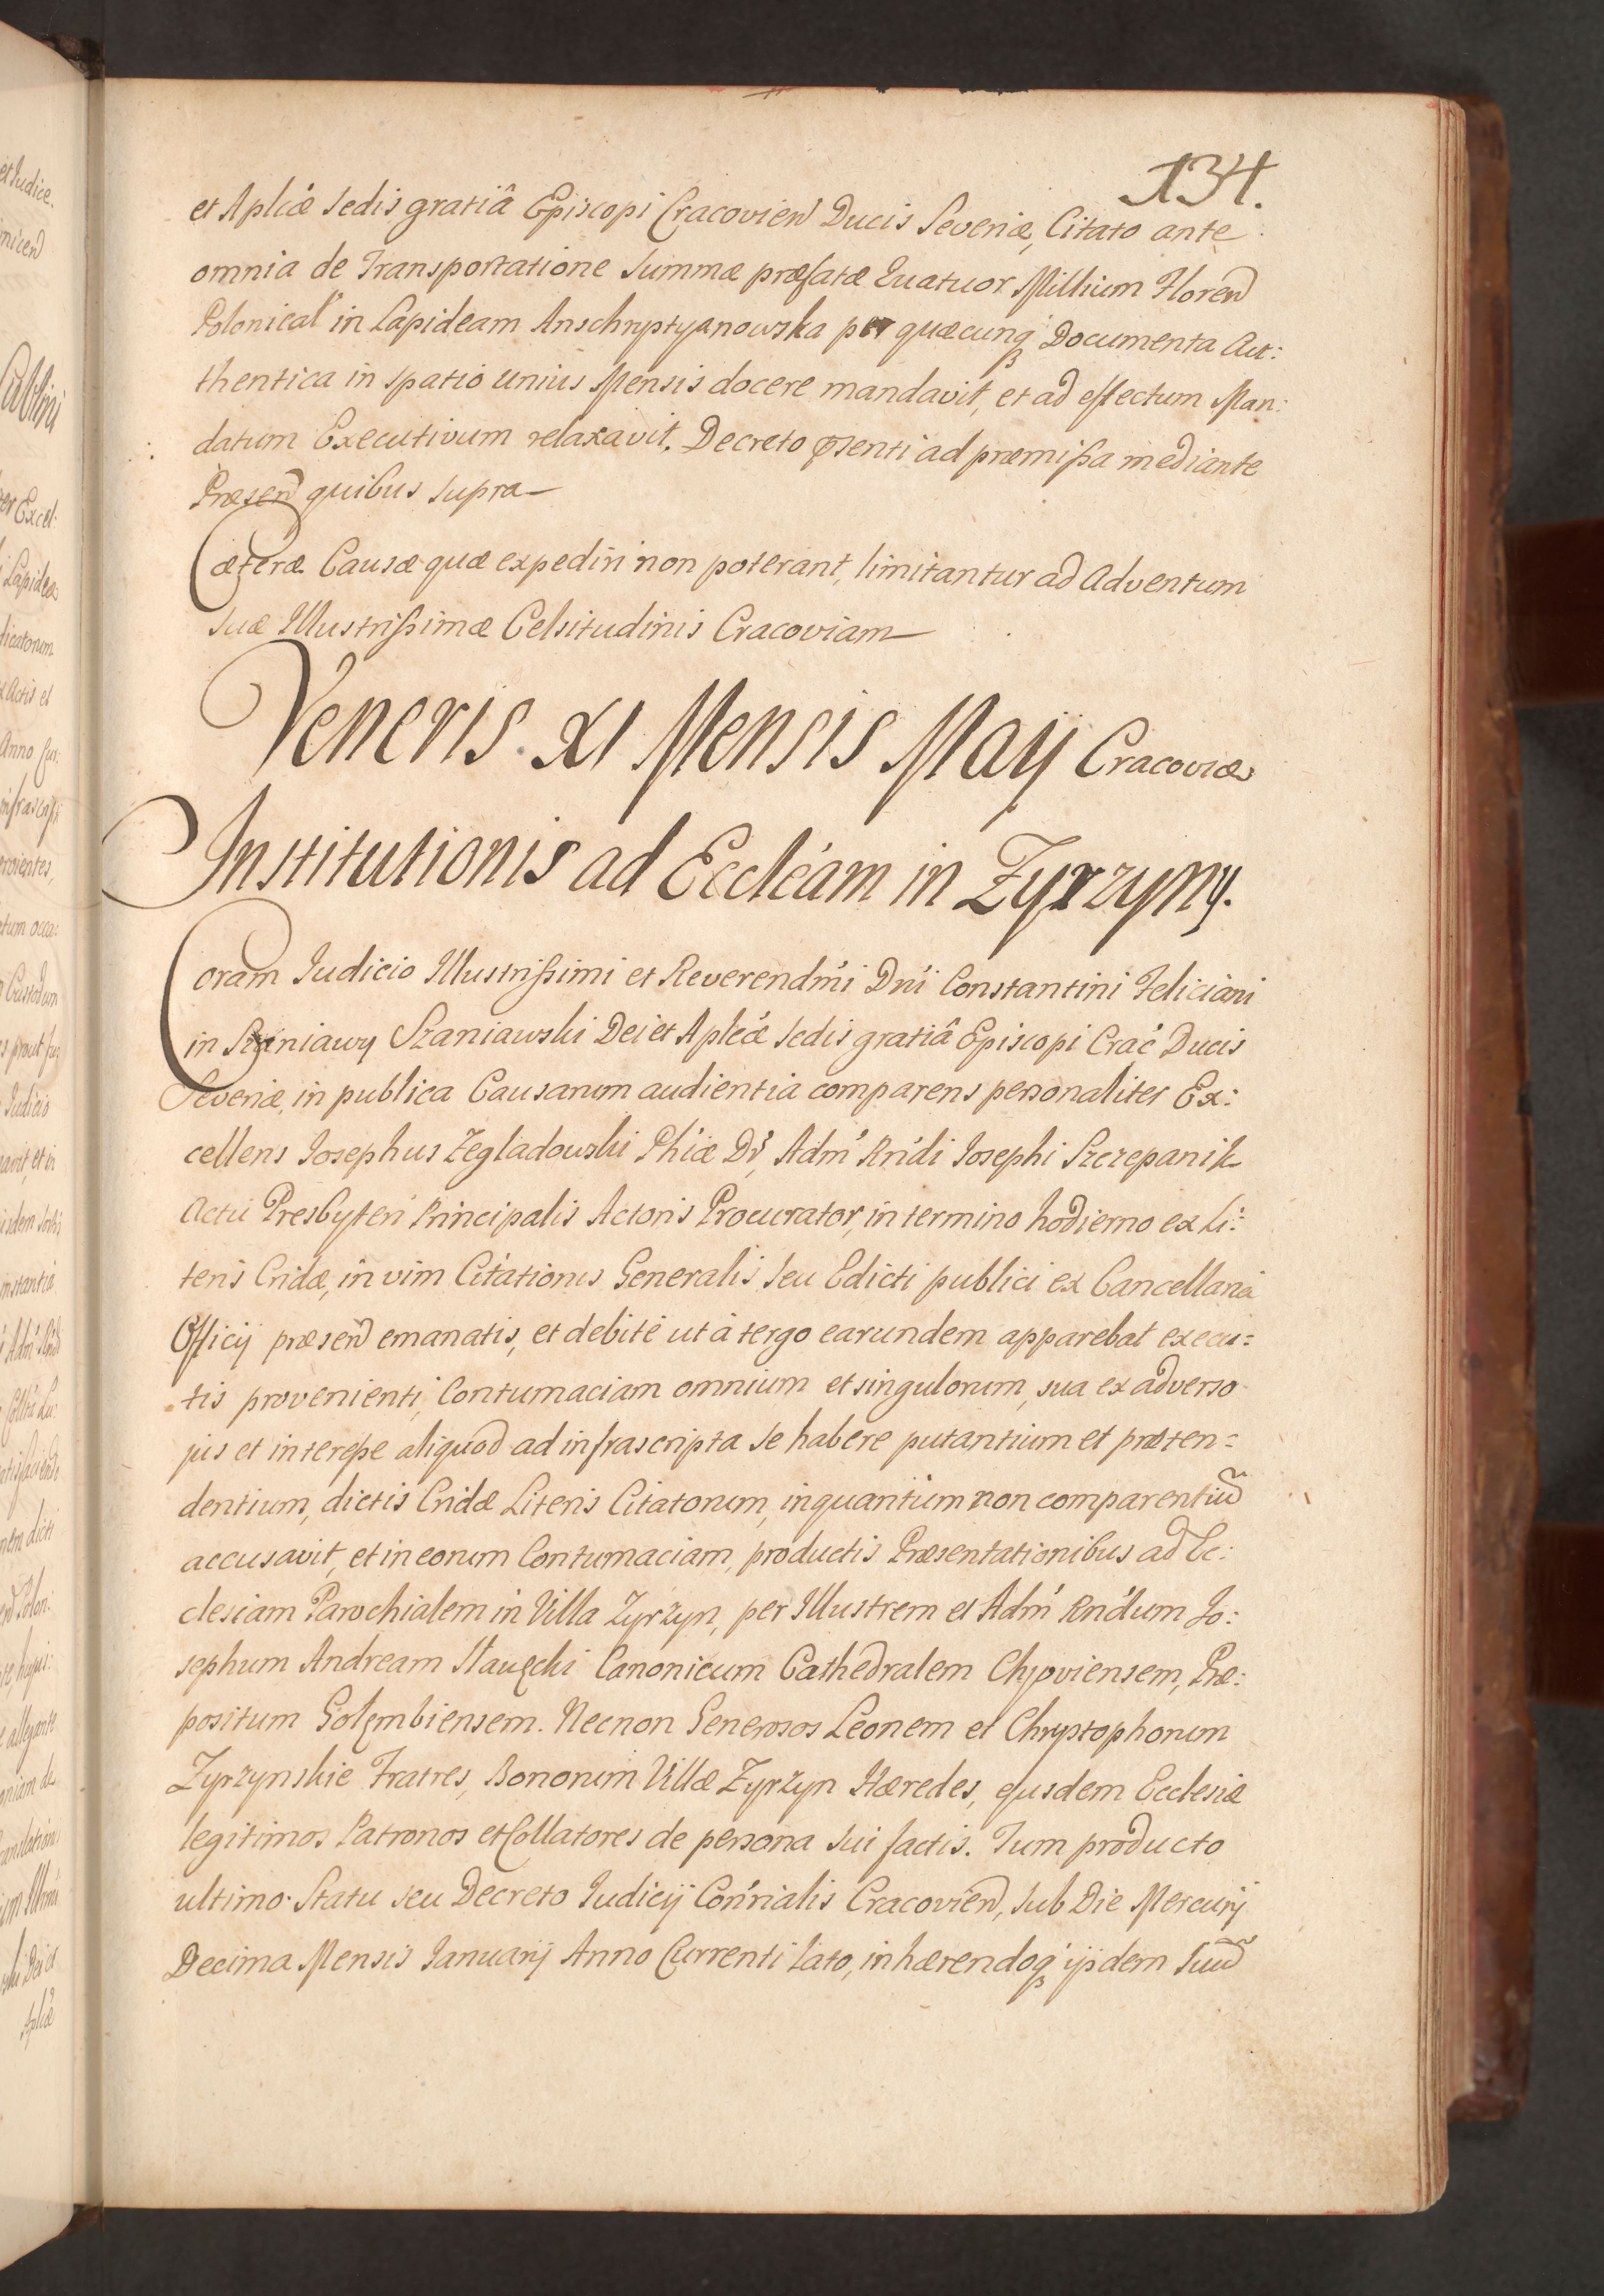 134.
et Aplicæ Sedis gratiâ Episcopi Cracovien Ducis Severiæ, Citato ante
omnia de Transportatione Summæ præfatæ Quatuor Millium Floren
Polonical in Lapideam Anschryptyanowska per quæcunq Documenta Au:
thentica in spatio unius Mensis docere mandavit, et ad effectum Man:
datum Executivum relaxavit. Decreto psenti ad præmißa mediante
Præsen quibus supra
Cæteræ Causæ quæ expediri non poterant, limitantur ad Adventum
Suæ Illustrißimæ Celsitudinis Cracoviam
Veneris XI Mensis Maÿ Cracoviæ
Institutionis ad Eccleam in Zyrzyny.
Coram Iudicio Illustrißimi et Reverendmi Dni Constantini Feliciani
in Szaniawy Szaniawski Dei et Aplcæ Sedis gratiâ Episcopi Crac Ducis
Severiæ, in publica Causarum audientia comparens personaliter Ex:
cellens Iosephus Zegladowski Phiæ Dr, Adm Rndi Iosephi Szczepanik
Actu Presbyteri Principalis Actoris Procurator, in termino hodierno ex Li:
teris Cridæ, in vim Citationis Generalis seu Edicti publici ex Cancellaria
Officij præsen emanatis, et debite ut à tergo earundem apparebat execu=
tis provenienti, Contumaciam omnium et singulorum, sua ex adverso
jus et intereße aliquod ad infrascripta se habere putantium et præten=
dentium, dictis Cridæ Literis Citatorum, inquantum non comparentiu
accusavit, et in eorum Contumaciam, productis Præsentationibus ad Ec:
clesiam Parochialem in Villa Zyrzyn, per Illustrem et Adm Rndum Io:
sephum Andream Canonicum Cathedralem Chyoviensem, Præ:
positum Golembiensem. Necnon Generosos Leonem et Chrystophorum
Zyrzynskie Fratres, Bonorum Villæ Zyrzyn Hæredes, ejusdem Ecclesiæ
legitimos Patronos et Collatores de persona sui factis. Tum producto
ultimo Statu seu Decreto Iudicij Conrialis Cracovien, sub Die Mercurij
Decima Mensis Ianuarij Anno Currenti lato, inhærendoq ijsdem Suu